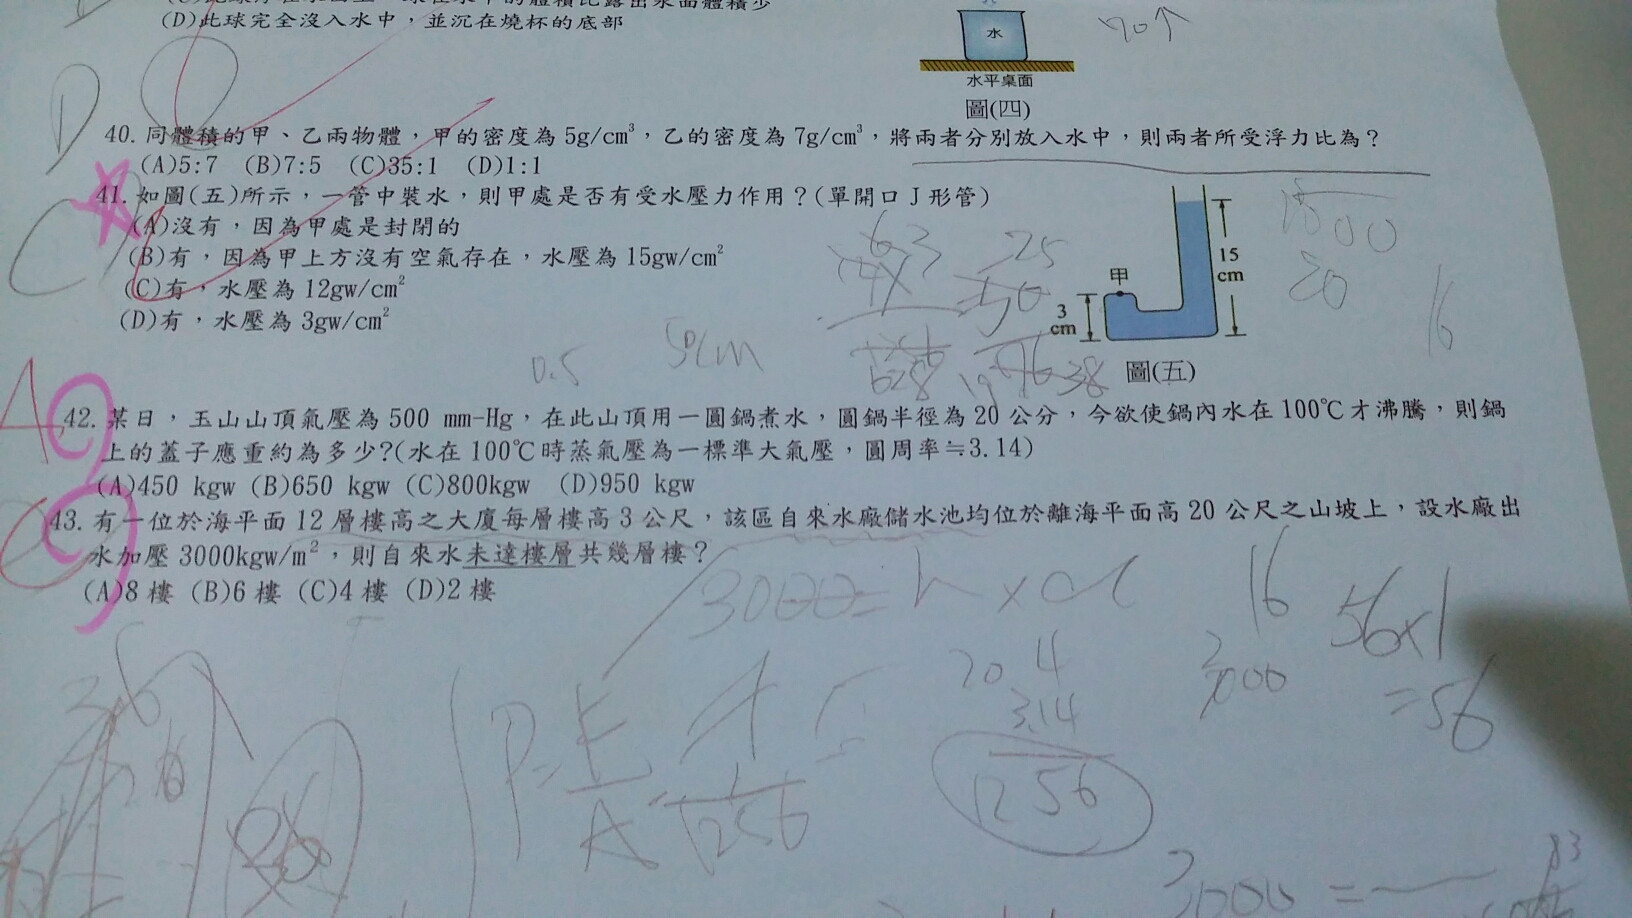 (D)此球完全沒入水中，並沉在燒杯的底部
水
水平桌面
圖(四)
70↑
D
40. 同體積的甲、乙兩物體，甲的密度為 5g/cm³，乙的密度為 7g/cm³，將兩者分別放入水中，則兩者所受浮力比為？
(A)5:7 (B)7:5 (C)35:1 (D)1:1
C
41. 如圖(五)所示，一管中裝水，則甲處是否有受水壓力作用？(單開口 J 形管)
(A)沒有，因為甲處是封閉的
(B)有，因為甲上方沒有空氣存在，水壓為 15gw/cm²
(C)有，水壓為 12gw/cm²
(D)有，水壓為 3gw/cm²
甲
15
cm
3
cm
圖(五)
25
20
16
0.5
50cm
38
A
42. 某日，玉山山頂氣壓為 500 mm-Hg，在此山頂用一圓鍋煮水，圓鍋半徑為 20 公分，今欲使鍋內水在 100℃ 才沸騰，則鍋
上的蓋子應重約為多少?(水在 100℃ 時蒸氣壓為一標準大氣壓，圓周率≒3.14)
(A)450 kgw (B)650 kgw (C)800kgw (D)950 kgw
C
43. 有一位於海平面 12 層樓高之大廈每層樓高 3 公尺，該區自來水廠儲水池均位於離海平面高 20 公尺之山坡上，設水廠出
水加壓 3000kgw/m²，則自來水未達樓層共幾層樓？
(A)8 樓 (B)6 樓 (C)4 樓 (D)2 樓
3000=h×d
16
56×1
=56
36
20 4
3.14
1256
3000
P=F/A
1256
3000=